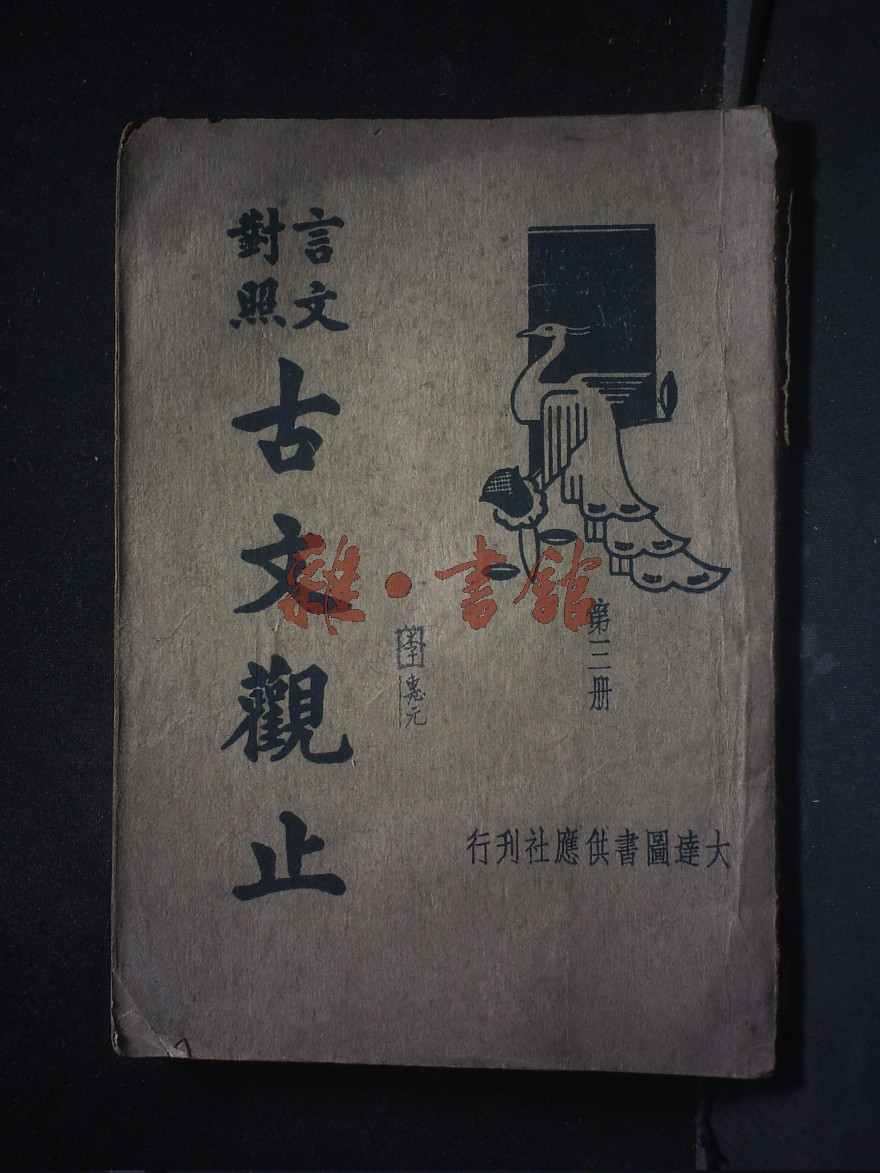 言文
對照
古文觀止
第三册
大達圖書供應社刊行
惠元
雜·書館